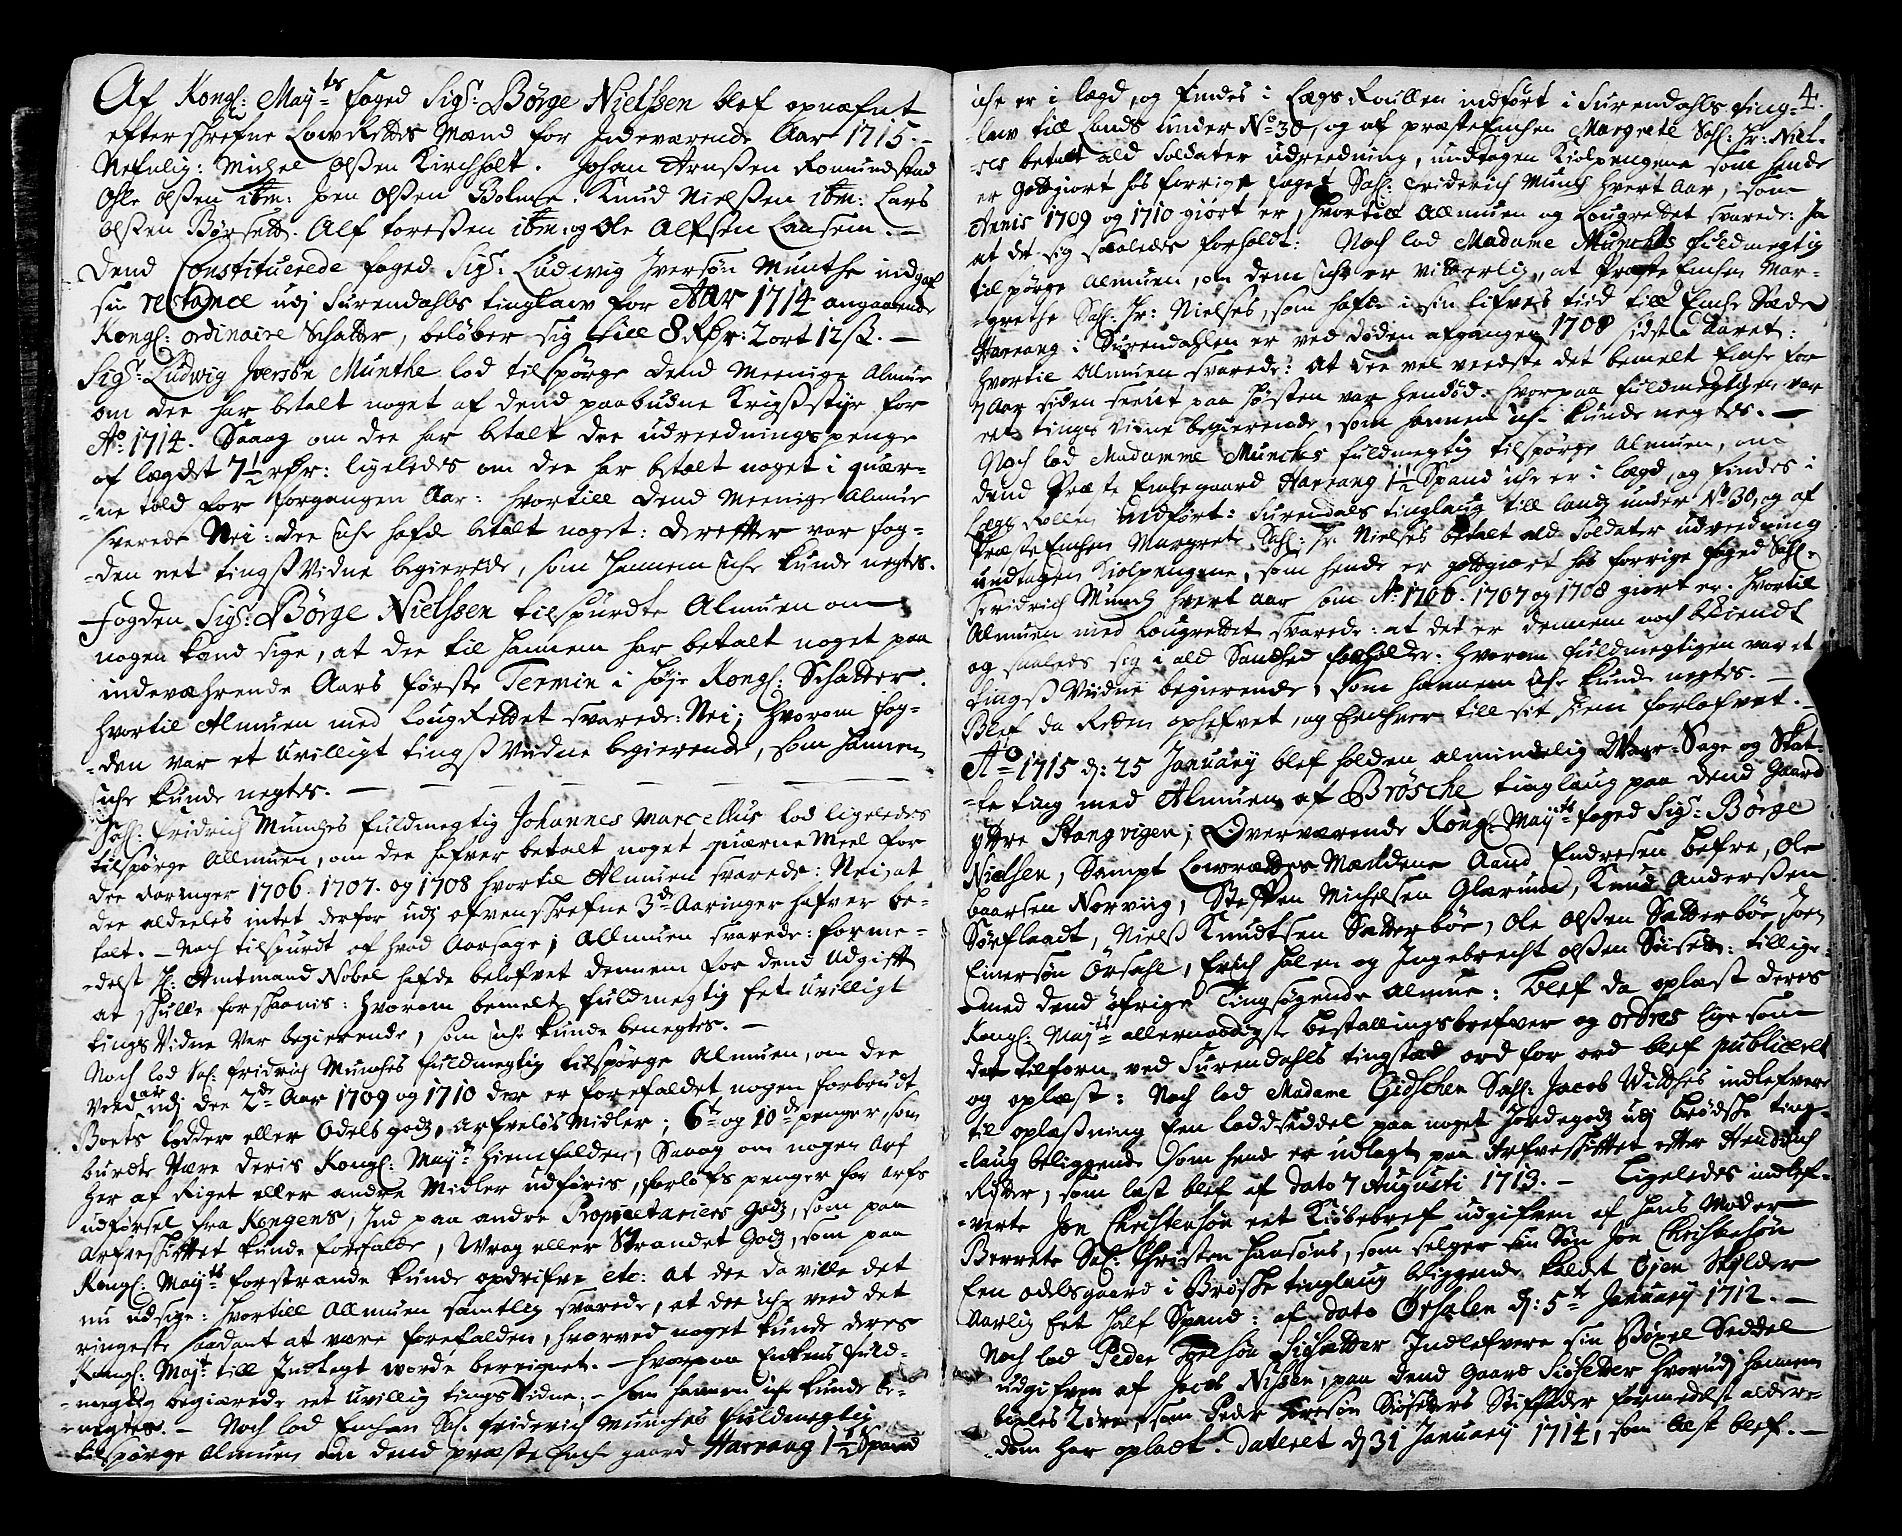 Af Kongl: May:ts foged Sigr: Børge Nielssen blef opnæfnt
efterskrefne LowRettes Mænd for Indeværende Aar 1715.–
Nefnlig: Michel Olssen Kirchholt. Johan Arnssen Romundstad
Ole Olssen ibm: Joen Olssen Bolme. Knud Nielssen ibm: Lars
Olssen Børsett. Alf Toressen ibm: og Ole Alfsen Lansem.–
Dend Constituerede foged Sigr: Ludwig Iversøn Munthe indgaf
sin restance udj Surendahls tinglaw for Aar 1714 angaaende
Kongl: ordinaire Schatter, beløber sig till 8 Rdr: 2 ort 12 s.–
Sigr: Ludwig Iversøn Munthe lod tilspørge dend Meenige Almue
om dee har betalt noget af dend paabudne Krigsstyr for
Ao: 1714. Saaog om dee har betalt dee udreednings penge
af lægdet 7½ rdr: ligeledes om dee har betalt noget i quær-
-ne told for forgangen Aar: hvortill dend Meenige Almue
svarede Nei: dee iche hafde betalt noget: derefter var fog-
-den eet tingsVidne begierede, som hannem iche kunde negtes.
Fogden Sigr: Børge Nielssen tilspurdte Almuen om
nogen kand sige, at dee til hannem har betalt noget paa
indeværhrende Aars første Termin i høje Kongl: Schatter.
hvortil Almuen med LougRettet svarede: Nei; hvorom fog-
-den var et uvilligt tingsVidne begierende, som hannem
iche kunde negtes. –
Sahl: Fridrich Munches fuldmegtig Johannes Marcellus lod ligeledes
tilspørge Allmuen, om dee hafver betalt noget quærne Meel for
dee Aaringer 1706. 1707. og 1708 hvortil Almuen svarede: Nei, at
dee aldeeles intet derfor udj ofvenskrefne 3de Aaringer hafver be-
talt. – Noch tilspurdt af hvad Aarsage; Allmuen svarede: forme-
-delst Hr: Amtmand Nobel hafde belofvet dennem for dend udgift
at skulle forskaanis: hvorom bemelte fuldmegtig Eet uvilligt
tings Vidne Var begierende, som iche kunde benegtes. –
Noch lod Sal: fridrich Munches fuldmegtig tilspørge Almuen, om dee
veed udj dee 2de Aar 1709 og 1710 der er forefaldet nogen forbrudt
Boets lodder eller Odels godz, Arfveløs Midler; 6te og 10de penger, som
burdte Være deris Kongl: May:ts hiemfalden, Saaog om nogen Arf
her af Riget eller andre Midler udføris, forlofs penger for Arfs
udførsel fra Kongens, Ind paa andre Proprietariers godz, som paa
Arfveskiftet kunde forefalde, Wrag eller Strandet Godz, som paa
Kongl: May:ts forstrande kunde opdrifve etc: at dee da ville det
nu udsige: hvortill Allmuen samtlig svarede, at dee iche veed det
ringeste saadant at være forefalden, hvorved noget kunde deres
Kongl: May:ts till Indtegt worde beregnet. – hvorpaa Enkens fuld-
-megtig begiærede eet uvillig tings Vidne; – som hannem iche kunde be-
-negtes. – Noch lod Enchen Sal: friderich Munches fuldmegtig
tilspørge Almuen om dend præste Enche gaard Harrang 1½ Spand
4.
iche er i lægd, og findes i Lægs Roullen indført i Surendahls ting-
law till Lands under No 30, og af præsteEnchen Margrete Sahl: Hr: Niel-
ses betalt ald Soldater udreedning, undtagen Kiolpengene som hende
er gottgiort hos forrige foget Sahl: Friderich Munch hvert Aar, som
Annis 1709 og 1710 giort er, hvortill Allmuen og Lougrettet svarede: Ja
at det sig saaledes forholdt: Noch lod Madame Munches fuldmegtig
tilspørge Almuen, om dem iche er vitterlig, at Præste Enchen Mar-
-grethe Sahl: Hr: Nielses, som hafde i sin lifves tiid till Enche Sæde
Harrang i Surendahlen er ved døden afgangen 1708 sidst i Aaret:
hvortil Almuen svarede: At dee vel veedste det bemelt Enche for
7 Aar siden seent paa høsten var hendød. hvorpaa fuldmegtigen var
eet tings Vidne begierende, som hannem iche kunde negtes. –
Noch lod Madamme Munches fuldmegtig tilspørge Almuen, om
dend Præste Enchegaard Harrang 1½ Spand iche er i lægd, og findes i
Lægs Rollen indført: Surendals tinglaug till landz under No 30, og af
Præste Enchen Margrete Sahl: Hr: Nielses betalt ald Soldater udreedning
undtagen Kiolpengene, som hende er gottgiort hos forrige foged Sahl:
Fridrich Munch hvert Aar som Ao 1706. 1707 og 1708 giort er: hvortil
Almuen med Lougrettet svarede: at det er dennem noch bekiendt
og saaleds sig i ald Sandhed forholder: hvorom fuldmegtigen var et
tings Vidne begierende, som hannem iche kunde negtes. –
Blef da Retten ophefvet, og Enhver till sit hiem forlofvet. –
Ao 1715 d: 25 January blef holden almindelig Waar-Sage og Skat-
-te ting med Almuen af Brøsche tinglaug paa dend Gaard
yttre Stangvigen; Overværende Kongl: May:ts foged Sigr: Børge
Nielsen, Sampt Lowrættes Mændene Aamd Endresen Befre, Ole
baarsen Norviig, Steffen Michelsen Glærum, Knud Anderssen
Sørfladt, Niels Knudtsen Setterbøe, Ole Olssen Sætterbøe, Joen
Einersøn Ørsahl, Erich Holen og Ingebrecht Olssen Siisett: tillige
med dend øfrige Tingsøgende Almue: blef da oplæst deres
Kongl: May:ts allernaadigste Bestallingsbrefver og ordres lige som
det tilforn ved Surendahls tingstæd ord for ord blef publiceret
og oplæst: Noch lod Madame Gidschen Sahl: Jacob Wildhes indlefvere
til oplæssning Een laddseddel paa noget Jordegodz udj brødske ting-
-laug beliggende som hende er udlagt paa Arfveskiftet etter Hendrich
Ridder, som læst blef af dato 7 Augusti 1713. – Ligeledes indlef-
-verte Jon Christensøn eet Kiøbebref udgifven af hans Moder
Berrete Sal: Christen Hansøns, som selger sin Søn Jon Christensøn
Een odelsgaard i Brøske tinglaug beliggende kaldet Øjen skylder
Aarlig Eet half Spand: af dato Ørsalen d: 5te January 1712. –
Noch lod Peder Toresøn Siisetter Indlefvere sin Bøxel Seddel
udgifven af Jacob Nissen, paa dend Gaard Siisetter hvorudj hannem
bøxles 2 øre, som Peder Toresøn Siisetters Stiffader formedelst aldere-
dom har opladt. dateret d 31 January 1714, som læst blef. –